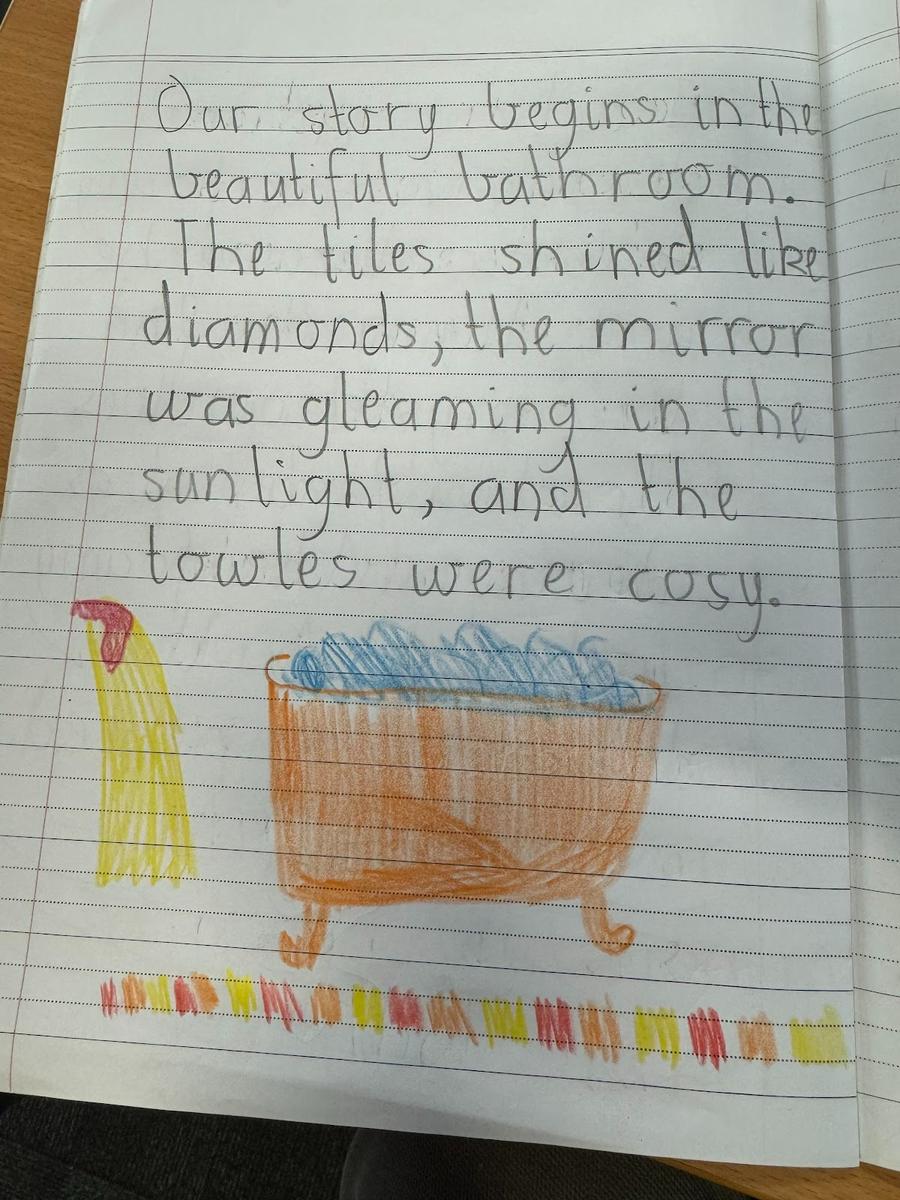 Our story begins in the
beautiful bathroom.
The tiles shined like
diamonds, the mirror
was gleaming in the
sunlight, and the
towles were cosy.